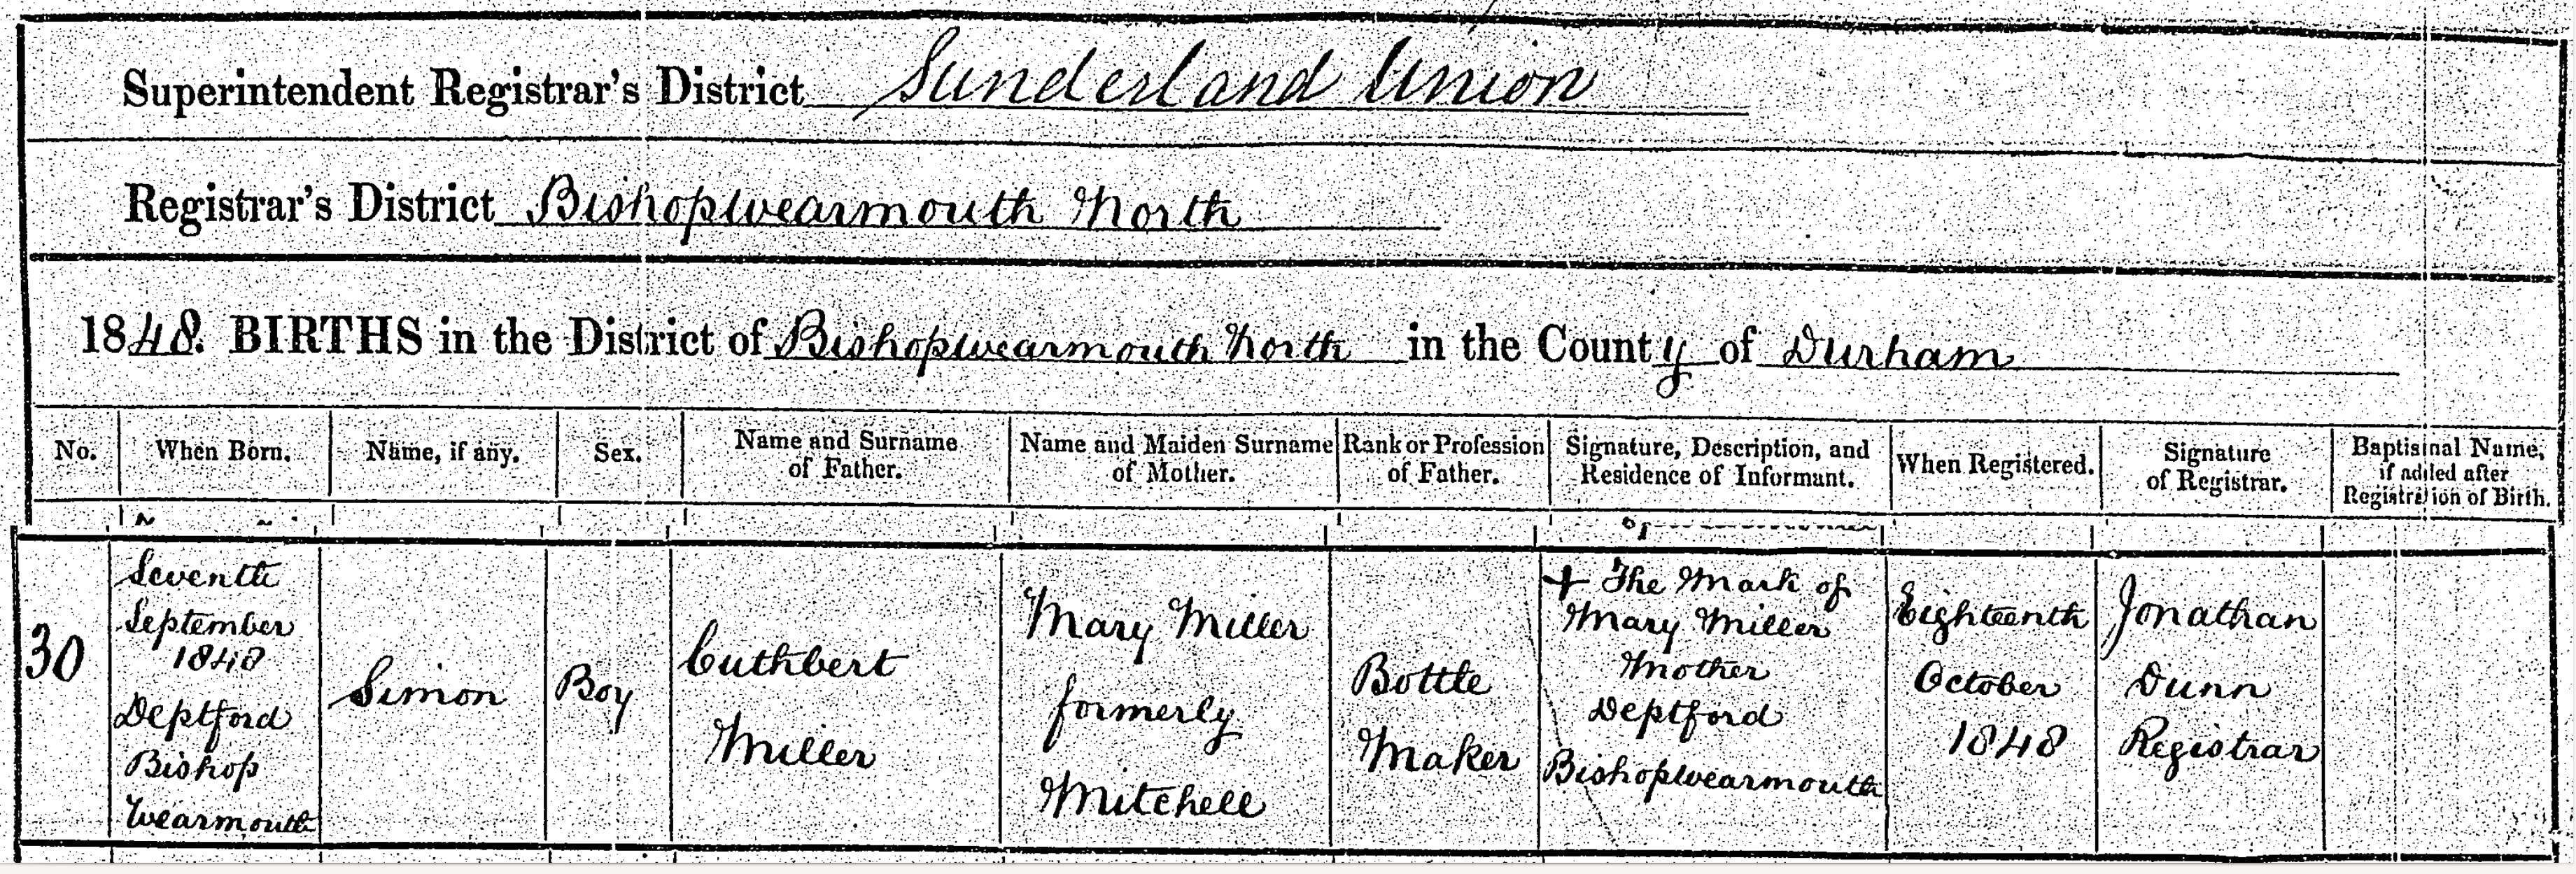 Superintendent Registrar's District Sunderland Union
Registrar's District Bishopwearmouth North
1848. BIRTHS in the District of Bishopwearmouth North in the County of Durham
No.
When Born.
Name, if any.
Sex.
Name and Surname
of Father.
Name and Maiden Surname
of Mother.
Rank or Profession
of Father.
Signature, Description, and
Residence of Informant.
When Registered.
Signature
of Registrar.
Baptismal Name,
if added after
Registration of Birth.
30
Seventh
September
1848
Deptford
Bishop
Wearmouth
Simon
Boy
Cuthbert
Miller
Mary Miller
formerly
Mitchell
Bottle
Maker
+ The Mark of
Mary Miller
Mother
Deptford
Bishopwearmouth
Eighteenth
October
1848
Jonathan
Dunn
Registrar